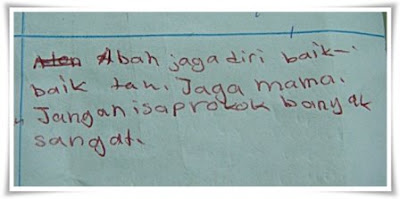 Abah jaga diri baik-
baik tau. Jaga mama.
Jangan isap rokok banyak
sangat.